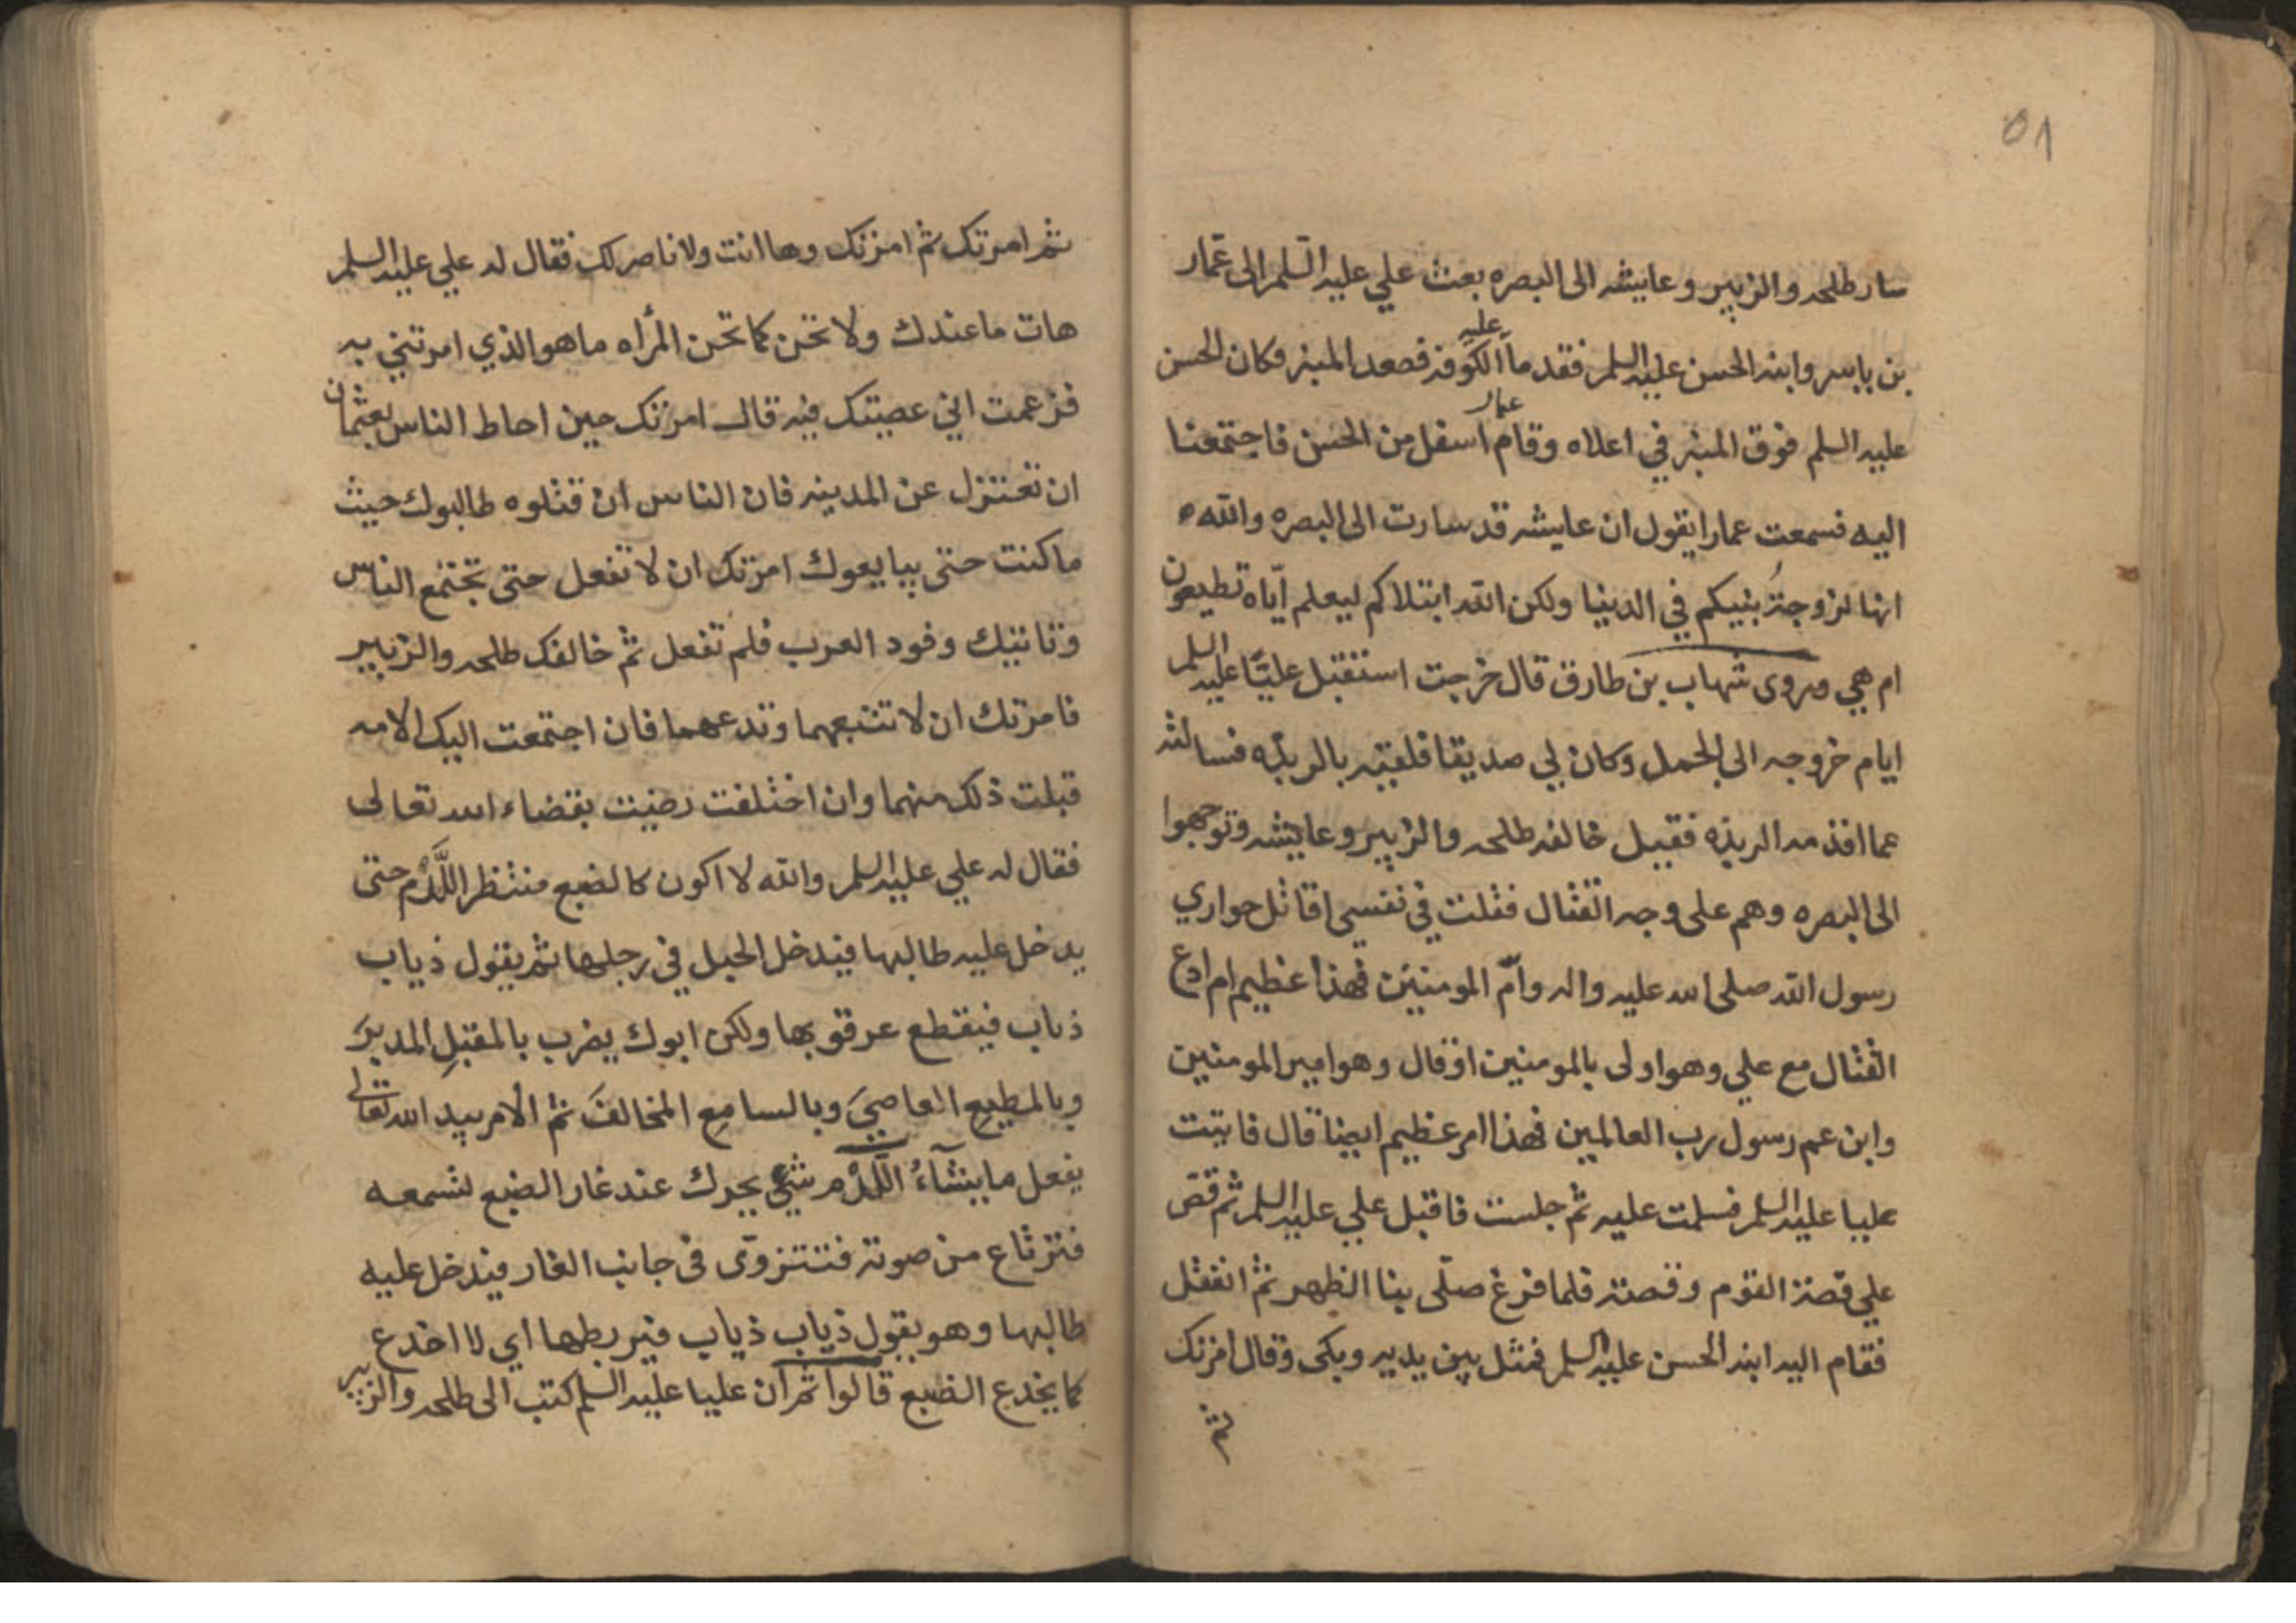 ٥١
سار طلحه والزبير وعايشه الى البصره بعث علي عليه السلم الى عمّار
بن ياسر وابنه الحسن عليه السلم فقدما علينا الكوفه فصعد المنبر فكان الحسن
عليه السلم فوق المنبر في اعلاه وقام عمار اسفل من الحسن فاجتمعنا
اليه فسمعت عمارا يقول ان عايشه قد سارت الى البصره والله
انها لزوجةُ نبيكم في الدنيا ولكن الله ابتلاكم ليعلم ايّاه تطيعون
ام هي وروى شهاب بن طارق قال خرجت استقبل عليّا عليه السلم
ايام خروجه الى الجمل وكان لي صديقا فلقيته بالربذه فسالته
عما اقدمه الربذه فقيل خالفه طلحه والزبير وعايشه وتوجهوا
الى البصره وهم على وجه القتال فقلت في نفسي اقاتل حواري
رسول الله صلى الله عليه واله وامّ المومنين فهذا عظيم ام ادع
القتال مع علي وهو اولى بالمومنين او قال وهو امير المومنين
وابن عم رسول رب العالمين فهذا امر عظيم ايضا قال فاتيت
عليا عليه السلم فسلمت عليه ثم جلست فاقبل علي عليه السلم ثم قصّ
علي قصة القوم وقصته فلما فرغ صلّى بنا الظهر ثم انفتل
فقام اليه ابنه الحسن عليه السلم فمثل بين يديه وبكى وقال امرتك
ثم
ثم امرتك ثم امرتك وها انت ولا ناصر لك فقال له علي عليه السلم
هات ما عندك ولا تحن كما تحن المرأه ما هو الذي امرتني به
فزعمت اني عصيتك فيه قال امرتك حين احاط الناس بعثمان
ان تعتزل عن المدينه فان الناس ان قتلوه طالبوك حيث
ما كنت حتى يبايعوك امرتك ان لا تفعل حتى تجتمع الناس
وتاتيك وفود العرب فلم تفعل ثم خالفك طلحه والزبير
فامرتك ان لا تتبعهما وتدعهما فان اجتمعت اليك الامه
قبلت ذلك منهما وان اختلفت رضيت بقضاء الله تعالى
فقال له علي عليه السلم والله لا اكون كالضبع منتظر اللَّدْم حتى
يدخل عليه طالبها فيدخل الحبل في رجلها ثم يقول ذياب
ذباب فيقطع عرقوبها ولكن ابوك يضرب بالمقبلِ المدبرَ
وبالمطيعِ العاصيَ وبالسامعِ المخالفَ ثم الامر بيد الله تعالى
يفعل ما يشآءُ اللَّدْم شيٌ يحرك عند غار الضبع لتسمعه
فترتاع من صوته فتنزوى في جانب الغار فيدخل عليه
طالبها وهو يقول ذياب ذياب فيربطها اي لا اخدع
كما يخدع الضبع قالوا ثم ان عليا عليه السلم كتب الى طلحه والزبير